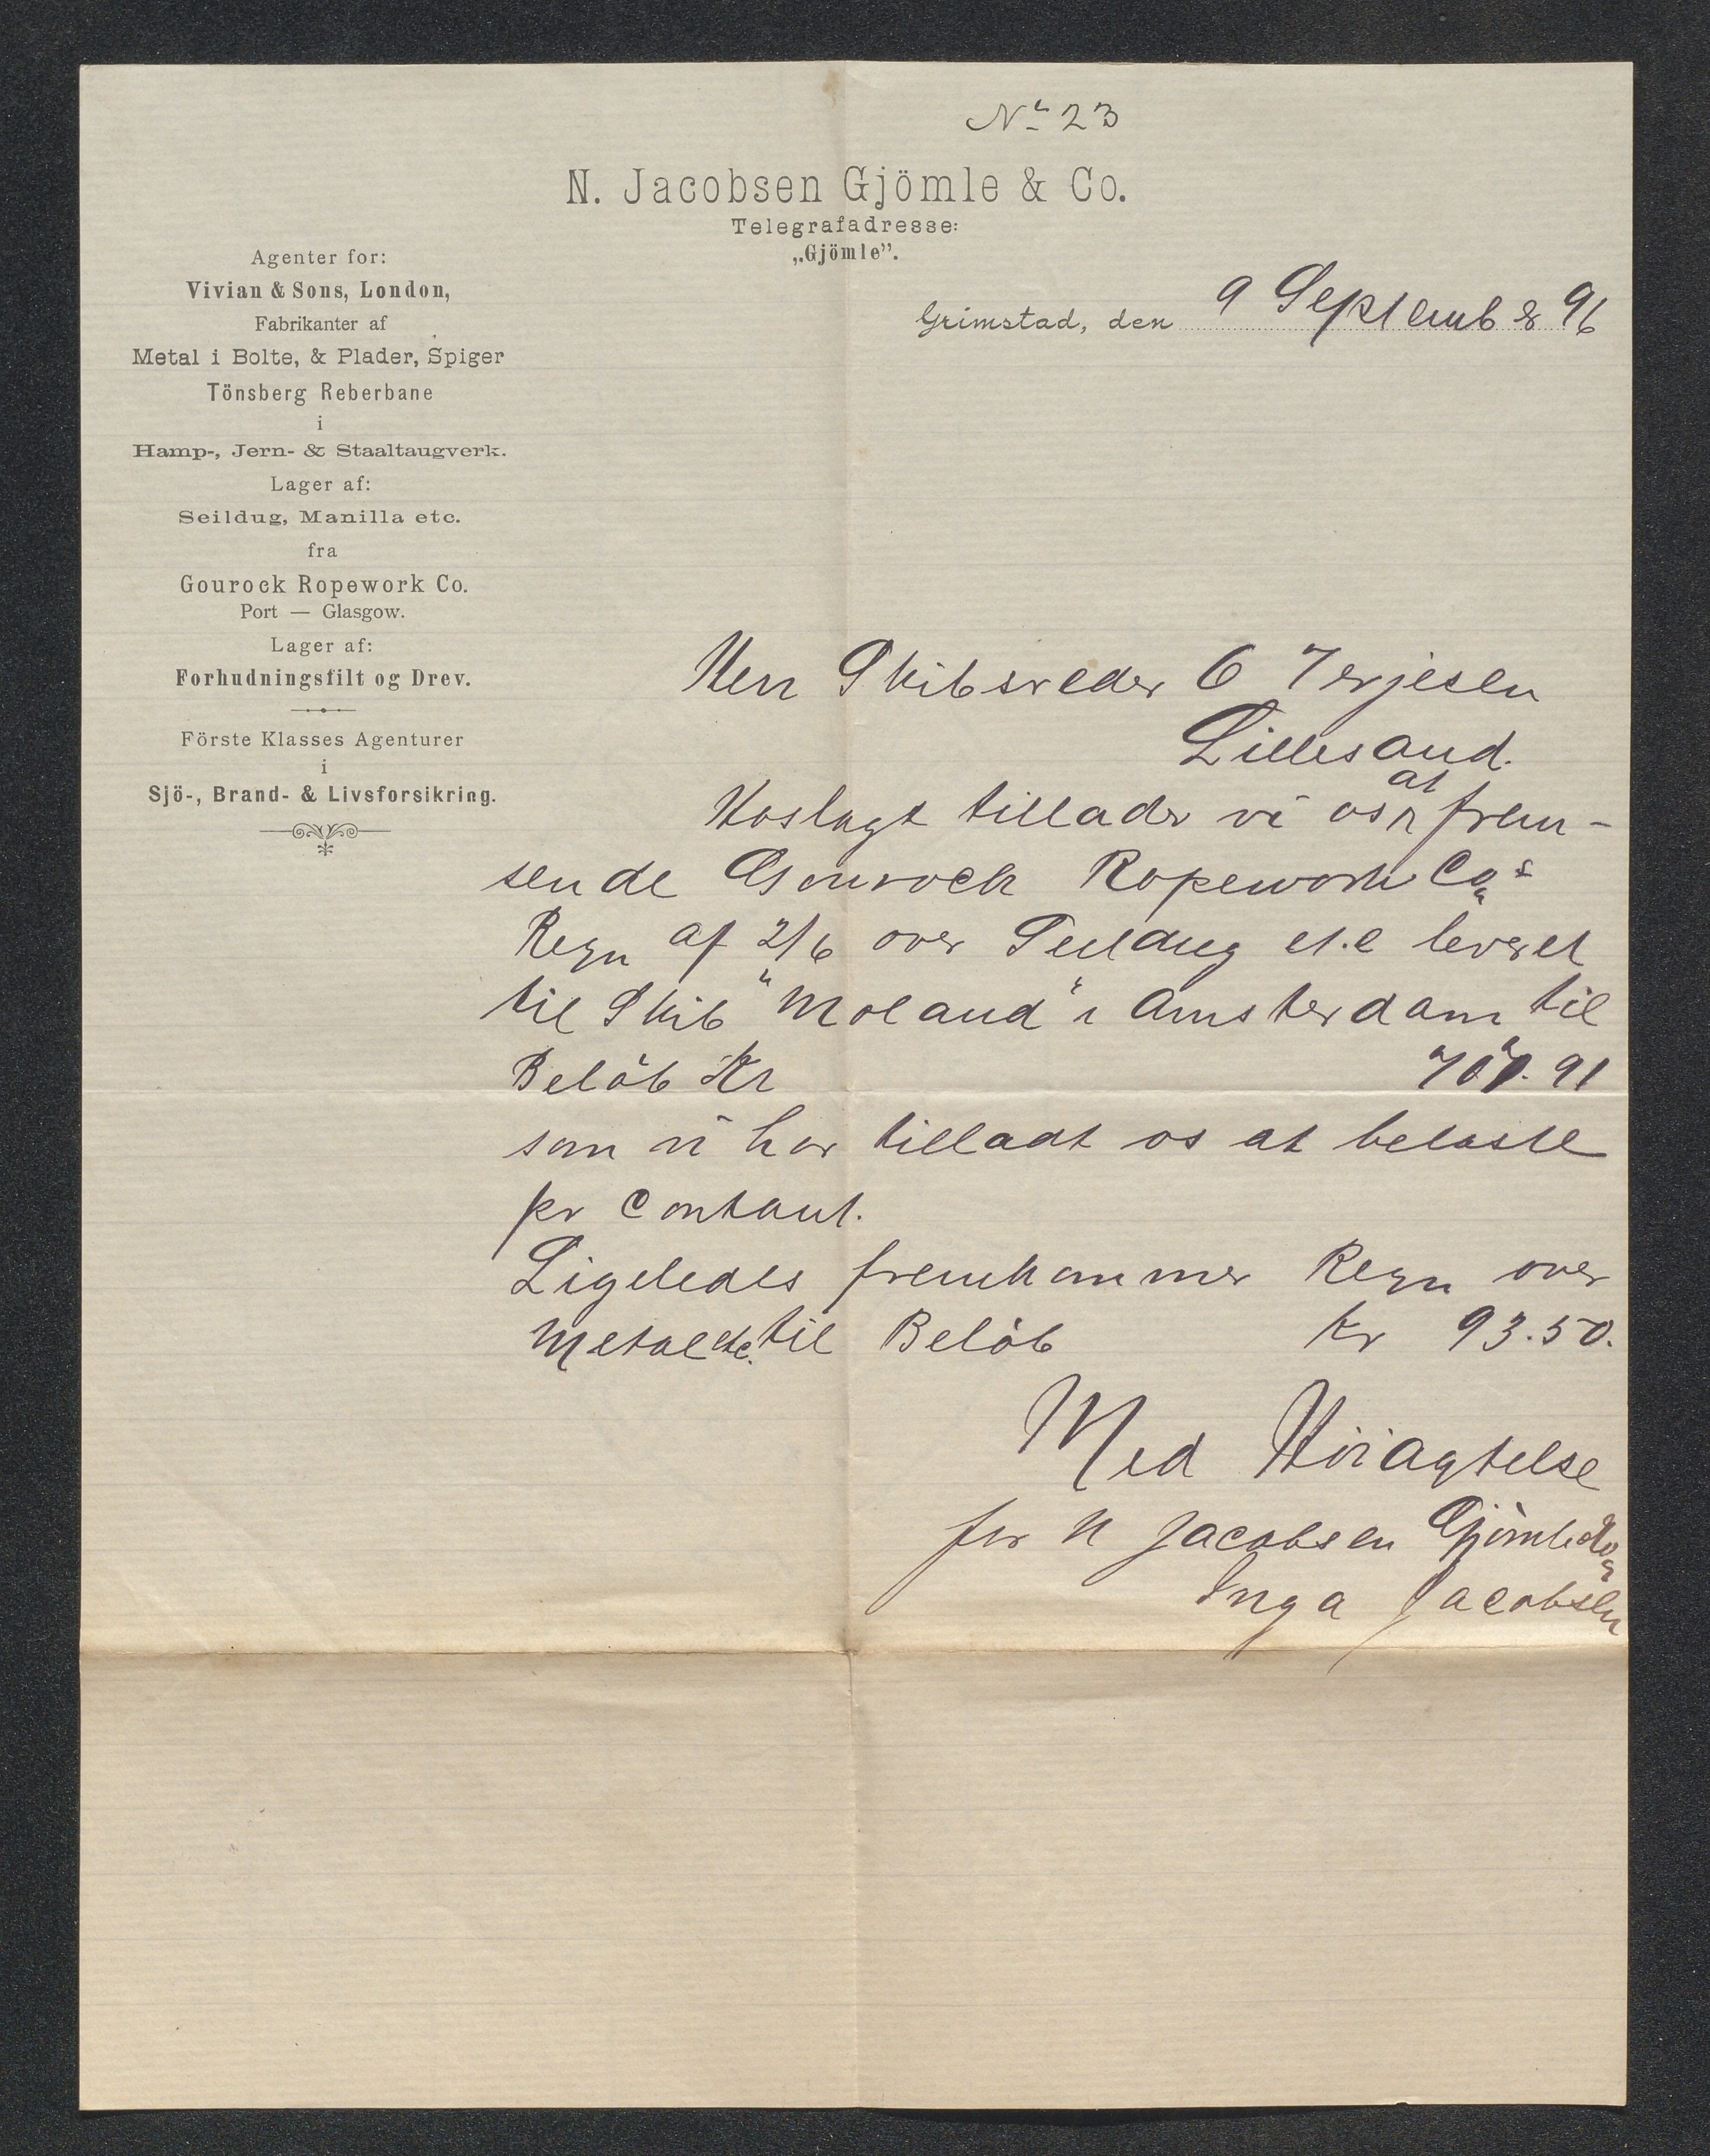 No 23
N. Jacobsen Gjömle & Co.
Telegrafadresse:
„Gjömle”.
Agenter for:
Vivian & Sons, London,
Fabrikanter af
Metal i Bolte, & Plader, Spiger
Tönsberg Reberbane
i
Hamp-, Jern- & Staaltaugverk.
Lager af:
Seildug, Manilla etc.
fra
Gourock Ropework Co.
Port — Glasgow.
Lager af:
Forhudningsfilt og Drev.
Förste Klasses Agenturer
i
Sjö-, Brand- & Livsforsikring.
Grimstad, den 9 September 96
Herr Skibsreder O Terjesen
Lillesand.
Hoslagt tillader vi os at frem-
sende Gourock Ropework Cos
Regn af 2/6 over Seildug et.c leveret
til Skib "Moland" i Amsterdam til
Belöb Kr 91
som vi har tilladt os at belaste
pr Contant.
Ligeledes fremkommer Regn over
Metal etc. til Belöb Kr 93.50.
Med Höiagtelse
for N Jacobsen Gjömle & Co
Inga Jacobsen